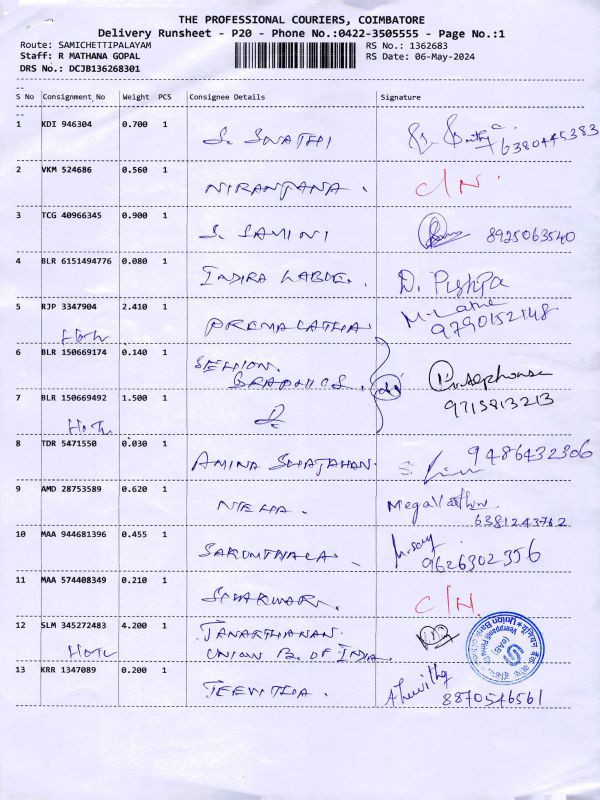 THE PROFESSIONAL COURIERS, COIMBATORE
Delivery Runsheet - P20 - Phone No.:0422-3505555 - Page No.:1
Route: SAMICHETTIPALAYAM RS No.: 1362683
Staff: R MATHANA GOPAL RS Date: 06-May-2024
DRS No.: DCJB136268301
S No Consignment No Weight PCS Consignee Details Signature
1 KDI 946304 0.700 1
S. SWATHI 6380445383
2 VKM 524686 0.560 1
NIRANJANA. C/N.
3 TCG 40966345 0.900 1
S. SAMINI 8925063540
4 BLR 6151494776 0.080 1
INDIRA D. Pushpa
5 RJP 3347904 2.410 1
PREMALATHA 9790152148
6 BLR 150669174 0.140 1
GRAPHICS.
7 BLR 150669492 1.500 1
9715813213
8 TDR 5471550 0.030 1
AMINA SHAJAHAN. 9486432306
9 AMD 28753589 0.620 1
NEHA. 6381243762
10 MAA 944681396 0.455 1
9626302356
11 MAA 574408349 0.210 1
C/N.
12 SLM 345272483 4.200 1
JANARTHANAN.
UNION B. OF INDIA.
13 KRR 1347089 0.200 1
JEEVITHA. 8870546561